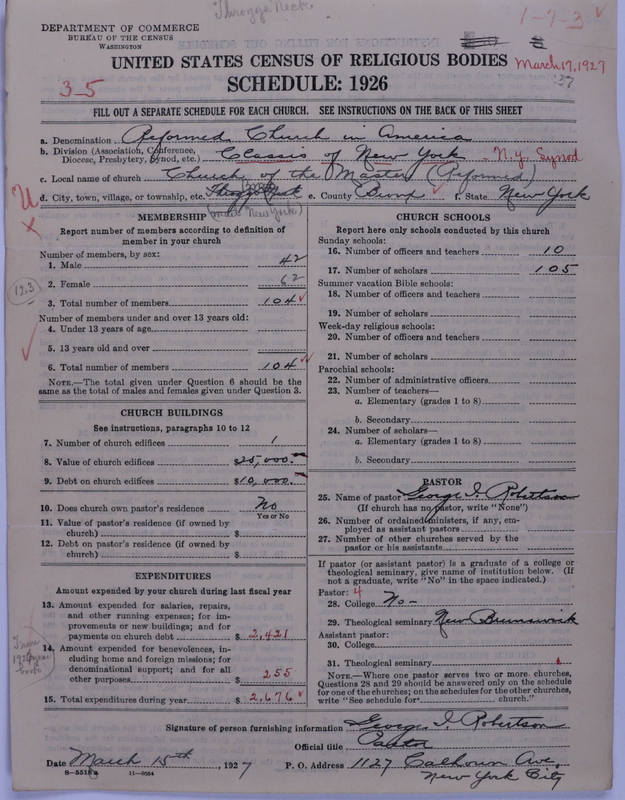 Throggs Neck
1-7-3 ✓
DEPARTMENT OF COMMERCE
BUREAU OF THE CENSUS
WASHINGTON
UNITED STATES CENSUS OF RELIGIOUS BODIES
March 17, 1927
SCHEDULE: 1926
3-5
FILL OUT A SEPARATE SCHEDULE FOR EACH CHURCH. SEE INSTRUCTIONS ON THE BACK OF THIS SHEET
a. Denomination Reformed Church in America
b. Division (Association, Conference, Diocese, Presbytery, Synod, etc.) Classis of New York - N.Y. Synod
c. Local name of church Church of the Master (Reformed)
d. City, town, village, or township, etc. Throggs Neck e. County Bronx ✓ f. State New York
MEMBERSHIP
Report number of members according to definition of
member in your church
Number of members, by sex:
1. Male 42
2. Female 62
3. Total number of members 104 ✓
Number of members under and over 13 years old:
4. Under 13 years of age
5. 13 years old and over
6. Total number of members 104 ✓
NOTE.—The total given under Question 6 should be
same as the total of males and females given under Question 3.
12.3
CHURCH BUILDINGS
See instructions, paragraphs 10 to 12
7. Number of church edifices 1
8. Value of church edifices $25,000.
9. Debt on church edifices $10,000.
10. Does church own pastor's residence No
Yes or No
11. Value of pastor's residence (if owned by
church) $
12. Debt on pastor's residence (if owned by
church) $
EXPENDITURES
Amount expended by your church during last fiscal year
13. Amount expended for salaries, repairs,
and other running expenses; for im-
provements or new buildings; and for
payments on church debt $ 2,421
14. Amount expended for benevolences, in-
cluding home and foreign missions; for
denominational support; and for all
other purposes $ 255
15. Total expenditures during year $ 2,676 ✓
From
1926 year
book
CHURCH SCHOOLS
Report here only schools conducted by this church
Sunday schools:
16. Number of officers and teachers 10
17. Number of scholars 105
Summer vacation Bible schools:
18. Number of officers and teachers
19. Number of scholars
Week-day religious schools:
20. Number of officers and teachers
21. Number of scholars
Parochial schools:
22. Number of administrative officers
23. Number of teachers—
a. Elementary (grades 1 to 8)
b. Secondary
24. Number of scholars—
a. Elementary (grades 1 to 8)
b. Secondary
PASTOR
25. Name of pastor George I. Robertson
(If church has no pastor, write "None")
26. Number of ordained ministers, if any, em-
ployed as assistant pastors
27. Number of other churches served by the
pastor or his assistants
If pastor (or assistant pastor) is a graduate of a college or
theological seminary, give name of institution below. (If
not a graduate, write "No" in the space indicated.)
Pastor: 4
28. College No-
29. Theological seminary New Brunswick
Assistant pastor:
30. College
31. Theological seminary
NOTE.—Where one pastor serves two or more churches,
Questions 28 and 29 should be answered only on the schedule
for one of the churches; on the schedules for the other churches,
write "See schedule for church."
Signature of person furnishing information George I. Robertson
Official title Pastor
Date March 15th, 1927 P. O. Address 1127 Calhoun Ave,
New York City
8-5518a 11-9554